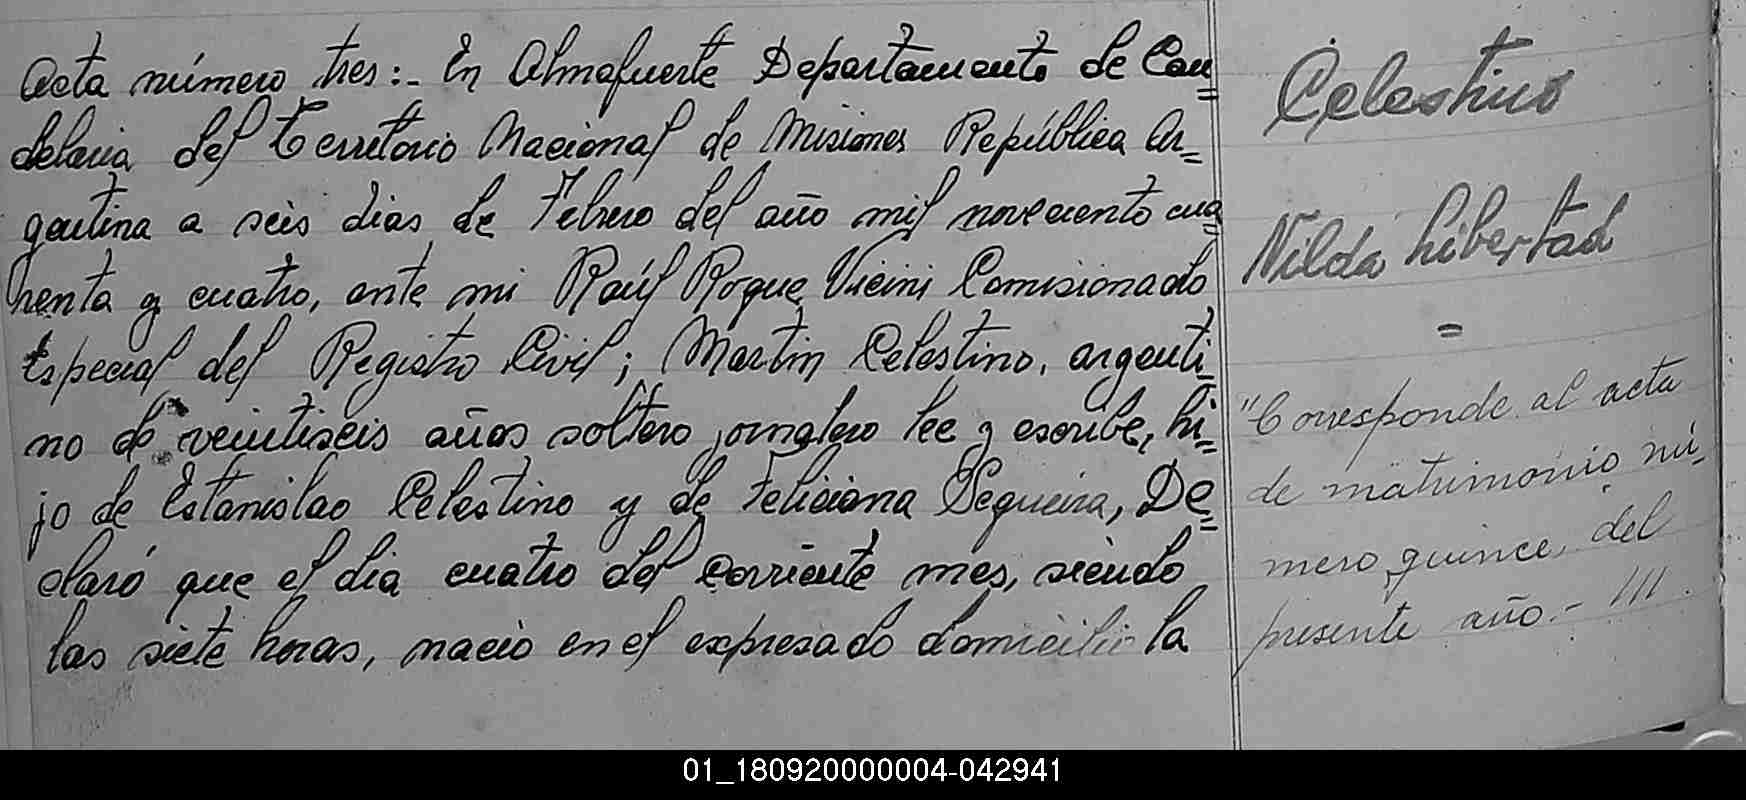 Acta número tres:- En Almafuerte Departamento de Can=
delaria del Territorio Nacional de Misiones República Ar=
gentina a seis dias de Febrero del año mil noveciento cua=
renta y cuatro, ante mi Raúl Roque Vicini Comisionado
Especial del Registro Civil; Martin Celestino, argenti=
no de veintiseis años soltero jornalero lee y escribe, hi=
jo de Estanislao Celestino y de Feliciana Sequeira, De=
claró que el dia cuatro del corriente mes, siendo
las siete horas, nació en el expresado domicilio la
Celestino
Nilda Libertad
=
"Corresponde al acta
de matrimonio nú=
mero quince, del
presente año.- ///.
01_180920000004-042941